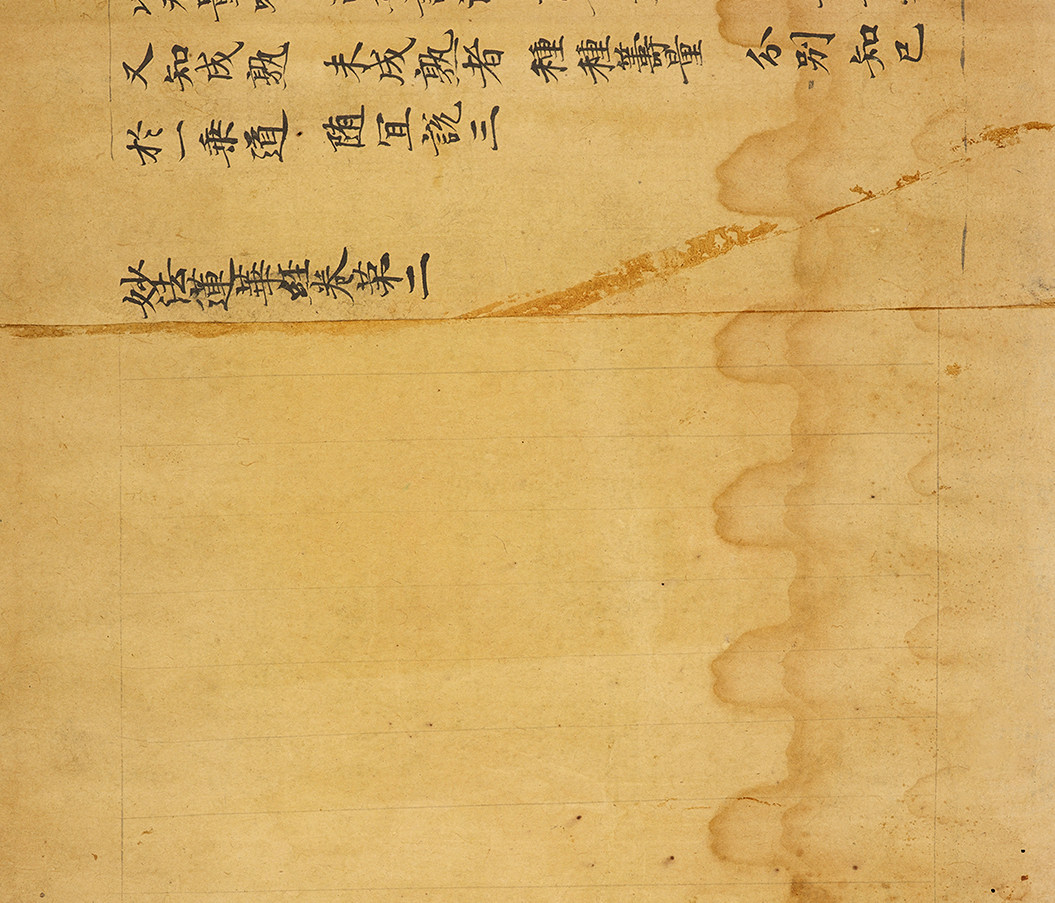 又知成熟 未成熟者 種種籌量 分別知已
於一乗道 随宜說三
妙法蓮華經卷第二